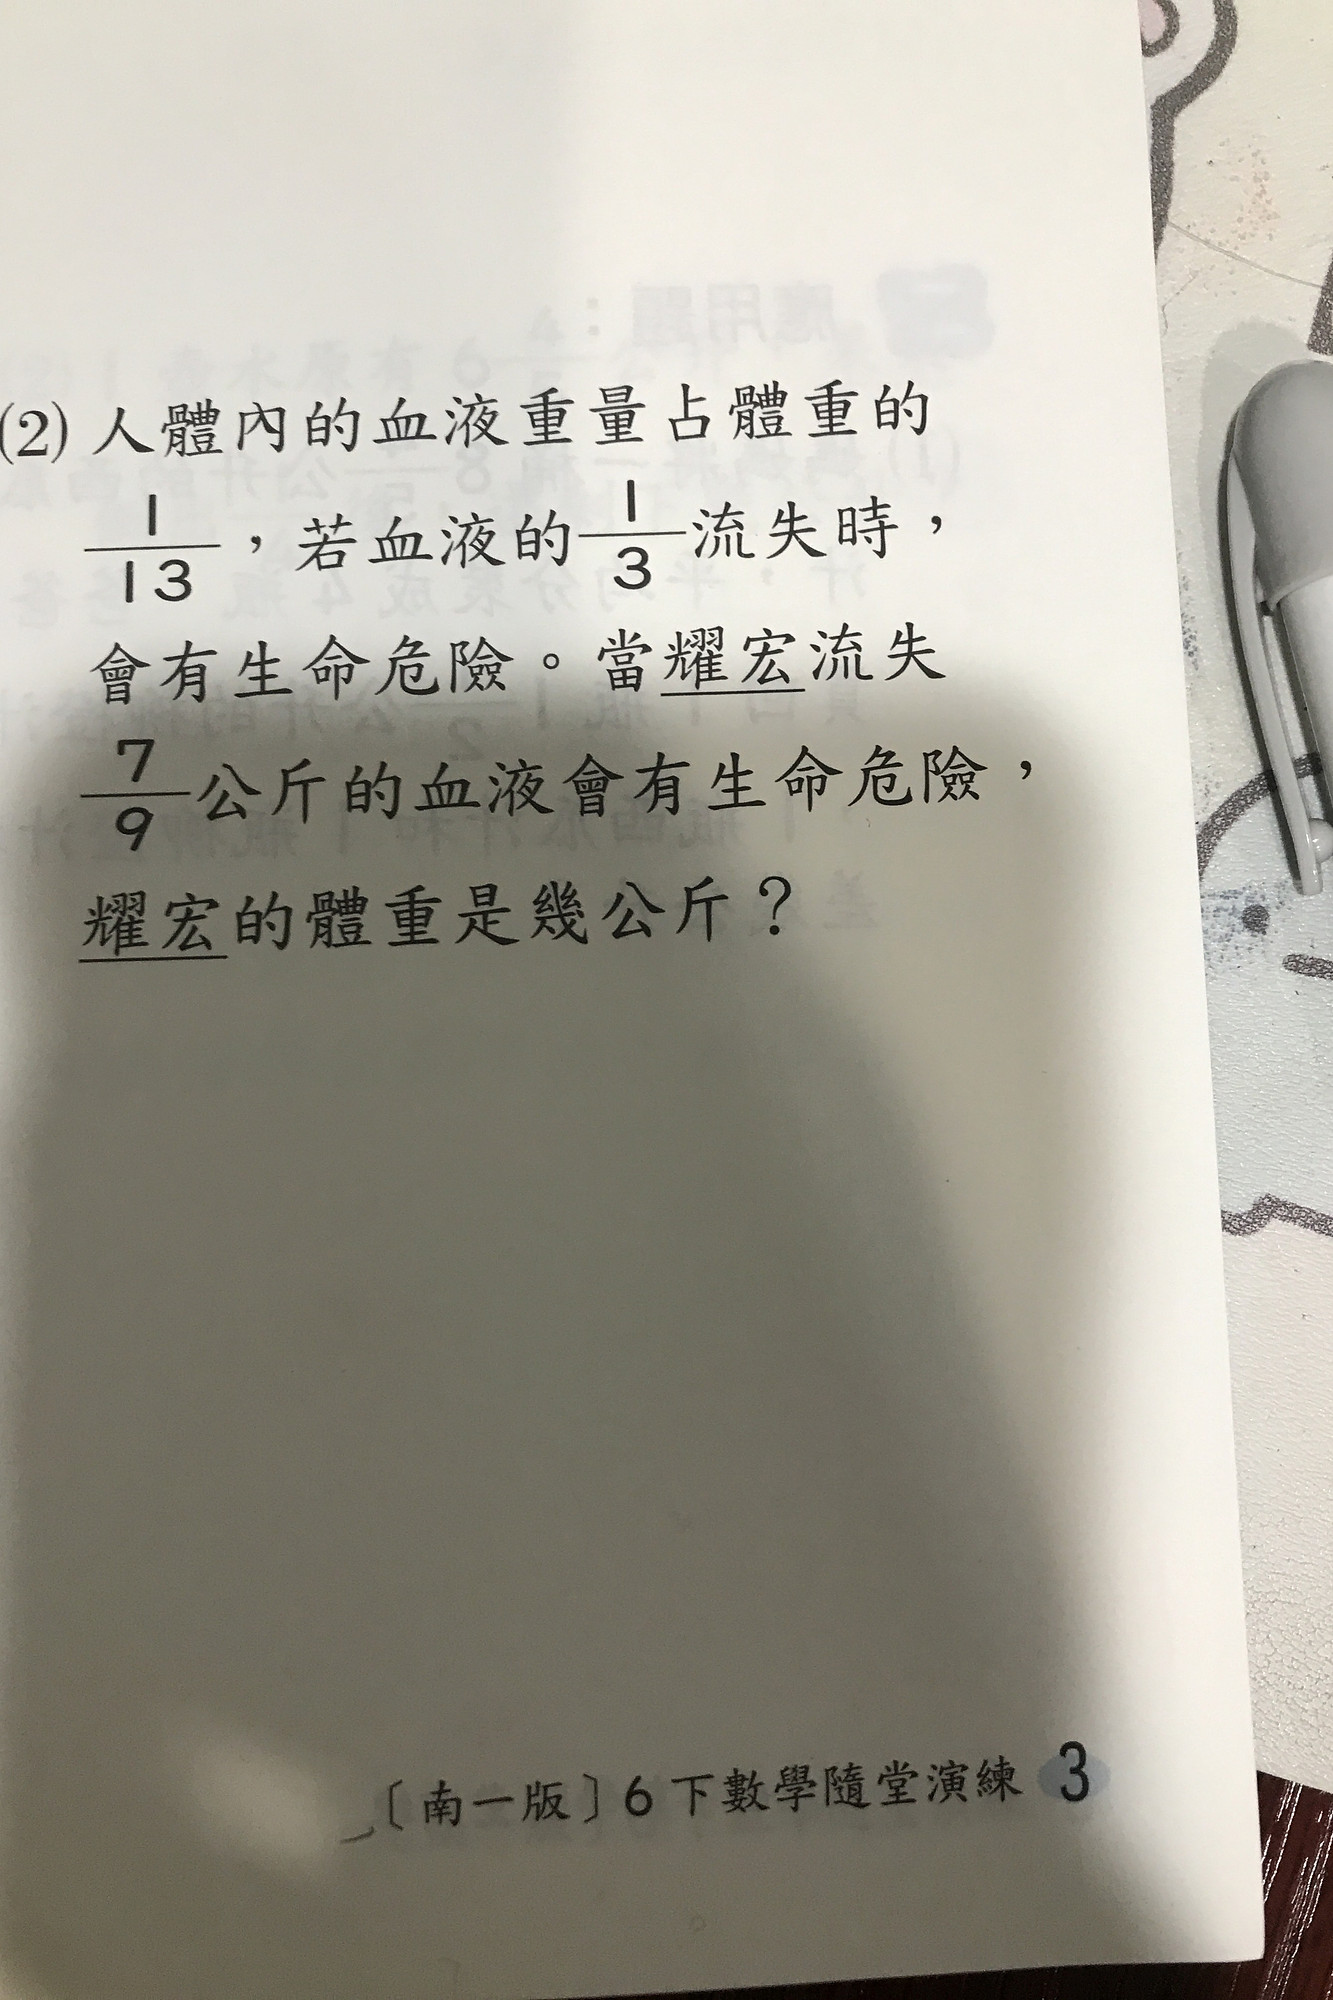 (2) 人體內的血液重量占體重的
1/13，若血液的1/3流失時，
會有生命危險。當耀宏流失
7/9公斤的血液會有生命危險，
耀宏的體重是幾公斤？
〔南一版〕6下數學隨堂演練 3